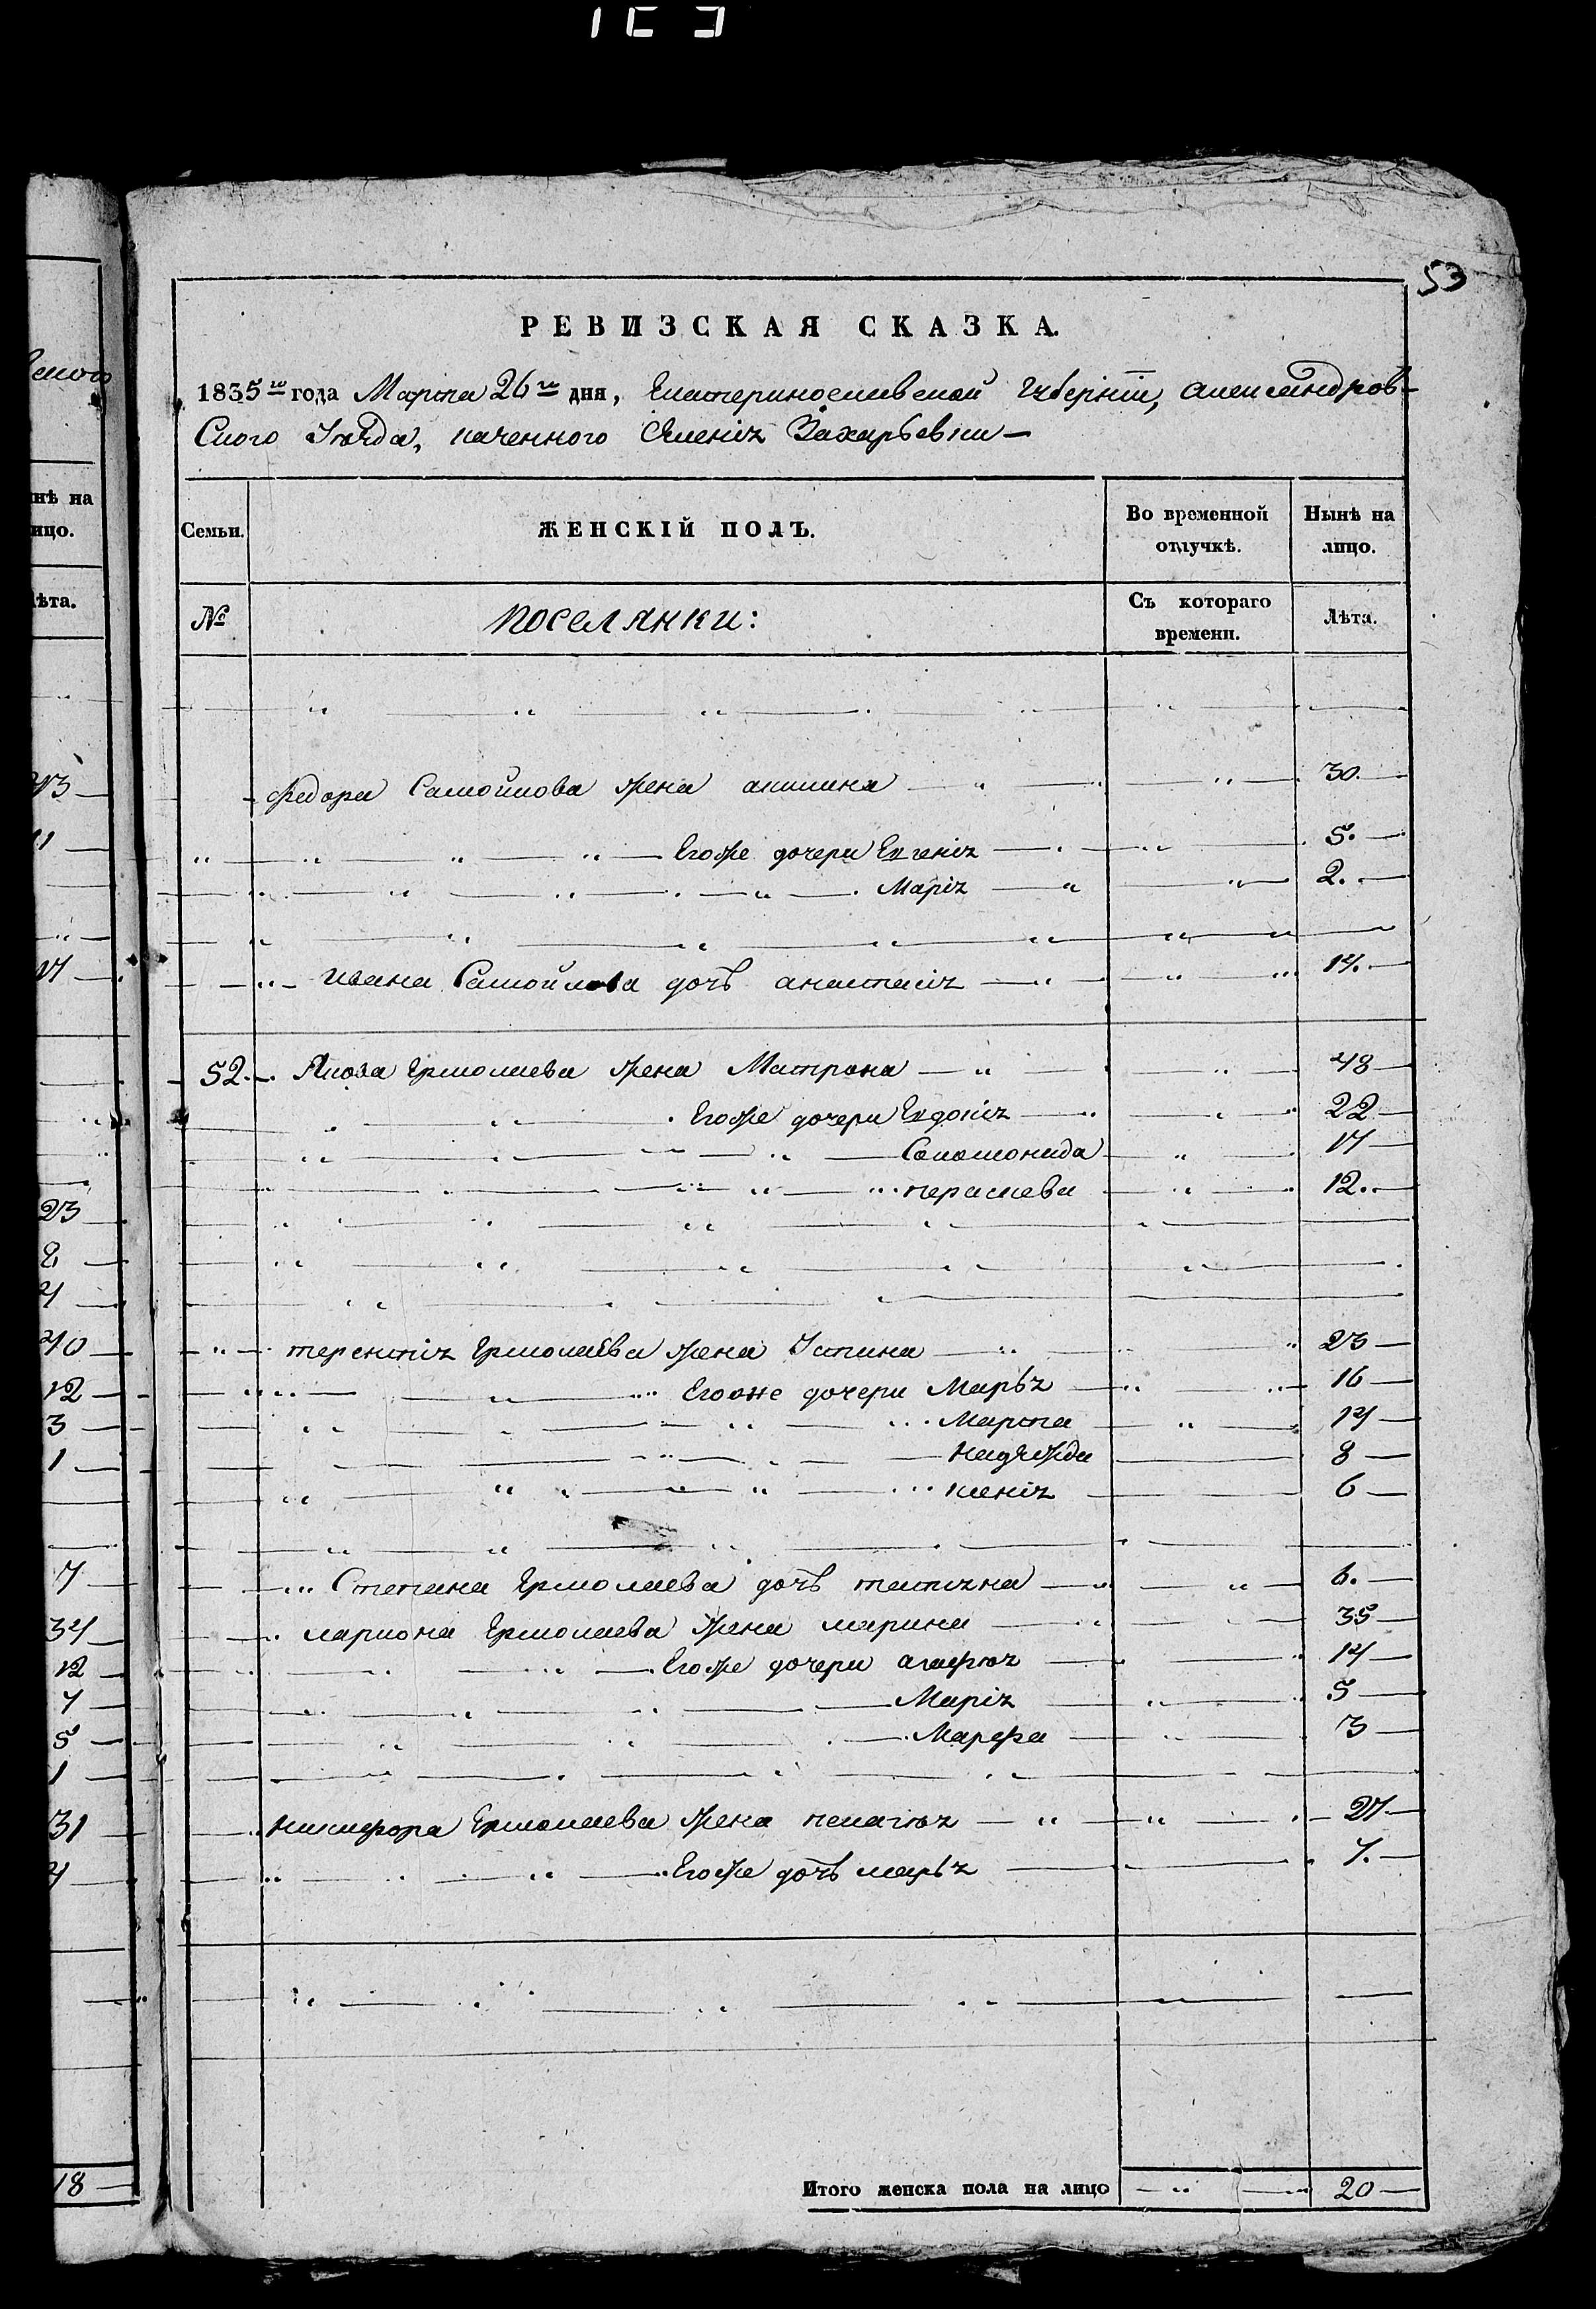 53
РЕВИЗСКАЯ СКАЗКА.
1835го года Марта 26го дня, Екатеринославской Губерніи, Александров-
ского Уезда, казенного Селенія Захарьевки —
Семьи. ЖЕНСКІЙ ПОЛЪ. Во временной отлучкѣ. Нынѣ на лицо.
№ поселянки: Съ котораго времени. Лѣта.
Федора Самойлова жена акилина 30.
Егоже дочери Евгенія 5.
Марія 2.
ивана Самойлова дочь анастасія 14.
52. Якова Ермолаева жена Матрона 48
Егоже дочери Евдокія 22
Соломонида 17
пераскева 12.
терентія Ермолаева жена Устина 23
Егоже дочери Марья 16
Марта 14
надежда 8
ксенія 6
Степана Ермолаева дочь татіяна 6.
лариона Ермолаева жена марина 35
Егоже дочери агафія 14
Марія 5
Марфа 3
никифора Ермолаева жена пелагія 27
Егоже дочь марья 7.
Итого женска пола на лицо 20
нѣ на
ицо.
ѣта.
23
8
40
12
3
1
7
34
12
5
1
31
18